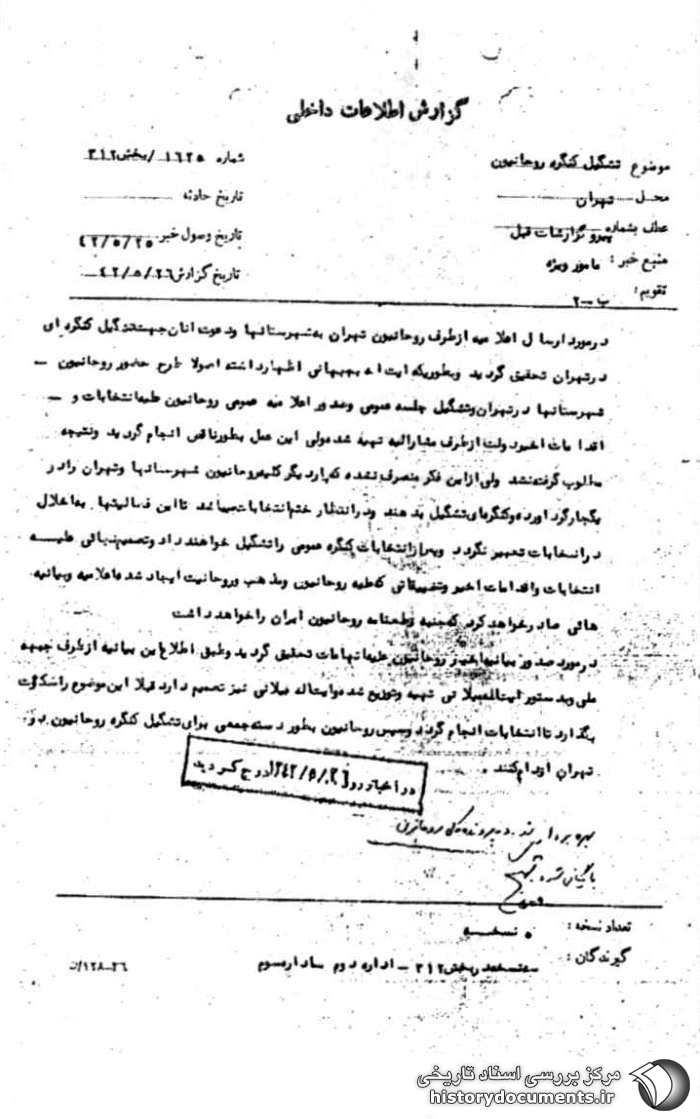 گزارش اطلاعات داخلی
موضوع تشکیل کنگره روحانیون
شماره ۱۶۲۵ /بخش۳۱۲
محل تهران
تاریخ حادثه
عطف بشماره پیرو گزارشات قبل
تاریخ وصول خبر ۴۲/۵/۲۵
منبع خبر : مامور ویژه
تاریخ گزارش ۴۲/۵/۲۶
تقویم : ب-۲
درمورد ارسال اعلامیه ازطرف روحانیون تهران به شهرستانها ودعوت انان جهت تشکیل کنگره ای
درتهران تحقیق گردید وبطوریکه ایت اله بهبهانی اظهارداشته اصولا طرح حضور روحانیون –
شهرستانها درتهران وتشکیل جلسه عمومی وصدور اعلامیه عمومی روحانیون علیه انتخابات و –
اقدامات اخیردولت ازطرف مشارالیه تهیه شده ولی این عمل بطورناقص انجام گردید ونتیجه
مطلوب گرفته نشد ولی ازاین فکر منصرف نشده که باردیگر کلیه روحانیون شهرستانها وتهران رادر
یکجا گرد اورده وکنگره ای تشکیل بدهند ودرانتظار ختم انتخابات میباشد تااین فعالیتها به اخلال
درانتخابات تعبیر نگردد وپس ازانتخابات کنگره عمومی راتشکیل خواهند داد وتصمیم نهائی علیه
انتخابات واقدامات اخیر وتضییقاتی که علیه روحانیون ومذهب وروحانیت ایجاد شده اعلامیه وبیانیه
هائی صادرخواهد کرد که جنبه قطعنامه روحانیون ایران را خواهد داشت
درمورد صدور بیانیه اخیر روحانیون علیه اتهامات تحقیق گردید وطبق اطلاع این بیانیه ازطرف جبهه
ملی وبدستور ایت اله میلانی تهیه وتوزیع شده وایت اله میلانی نیز تصمیم دارد فعلا این موضوع رامسکوت
بگذارد تاانتخابات انجام گردد وسپس روحانیون بطور دسته جمعی برای تشکیل کنگره روحانیون در
تهران اقدام کنند .
در اخبار روز ۴۲/۵/۲۶ درج گردید
بهره برداری شد
بایگانی شود
تعداد نسخه : ۵ نسخه
گیرندگان : بخش ۳۱۲ – اداره دوم – اداره سوم
۱۲۸-۲۶/ت
مرکز بررسی اسناد تاریخی
historydocuments.ir